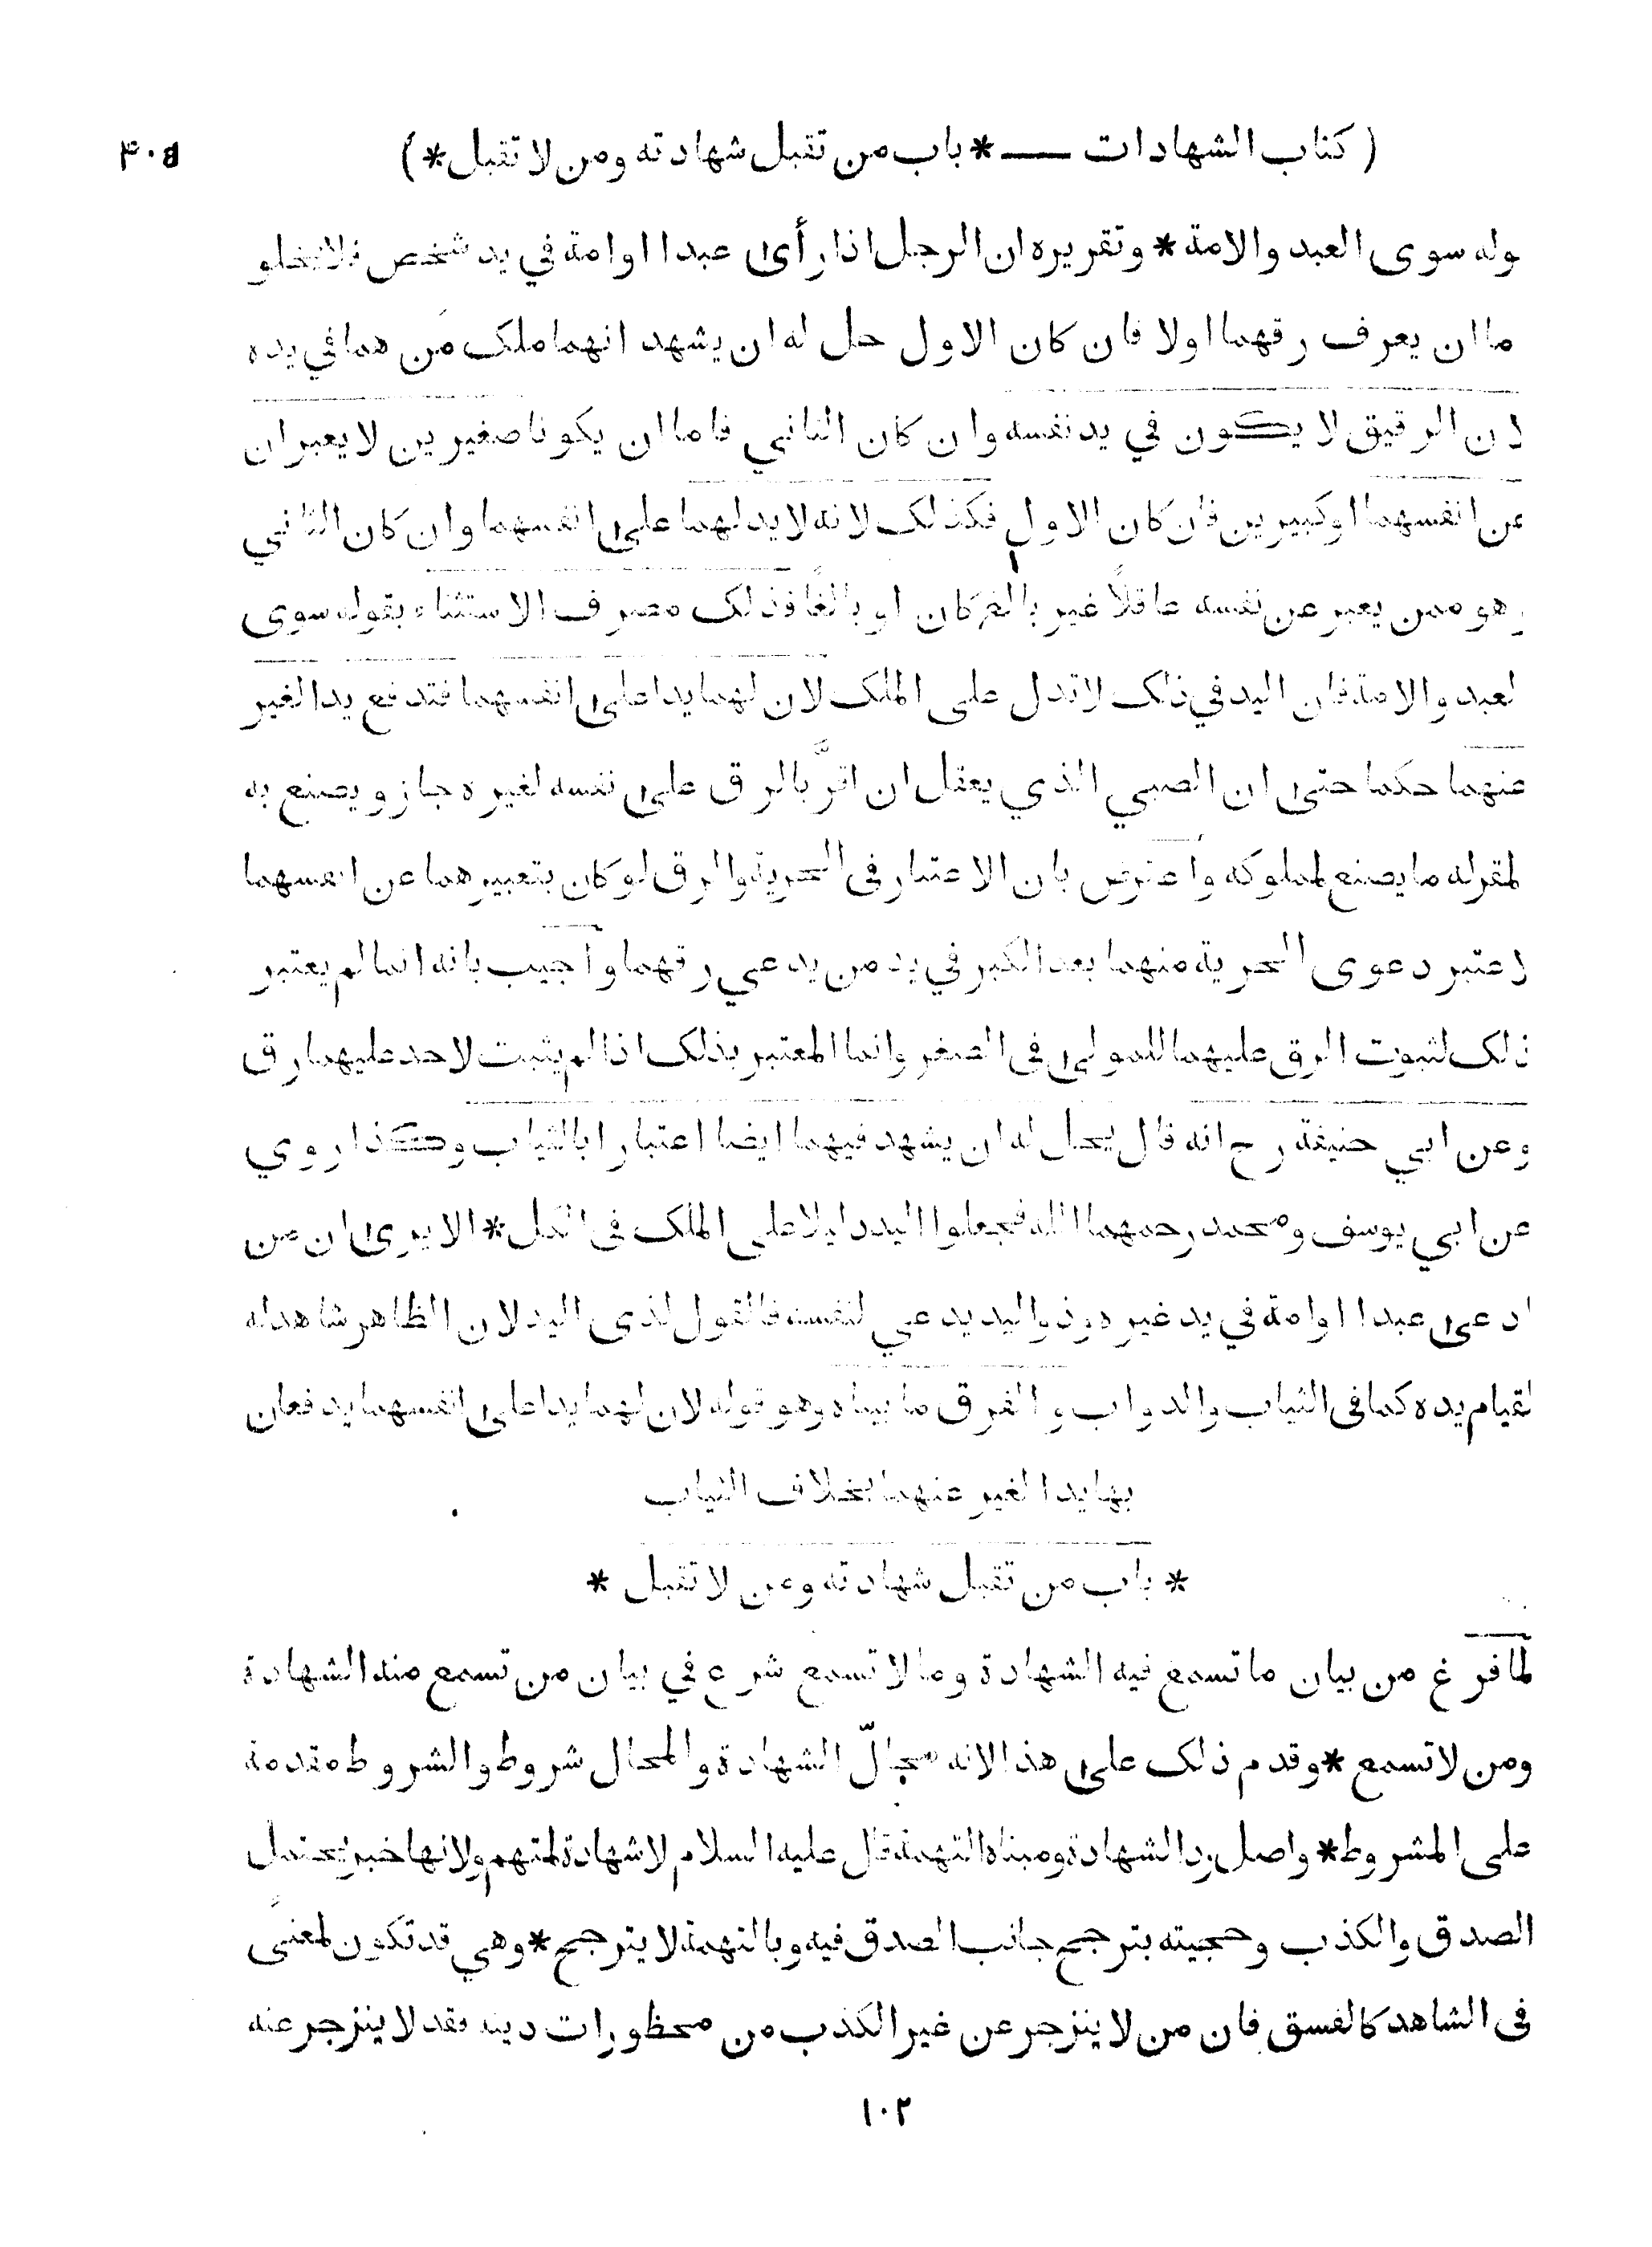 ( كتاب الشهادات ـــ * باب من تقبل شهادته ومن لا تقبل * ) ٤٠٥
وله سوى العبد والامة * وتقريره ان الرجل اذا رأى عبدا اوامة في يد شخص فلا يخلو
ما ان يعرف رقهما اولا فان كان الاول حل له ان يشهد انهما ملك من هما في يده
لان الرقيق لا يكون في يد نفسه وان كان الثاني فاما ان يكونا صغيرين لا يعبران
عن انفسهما اوكبيرين فان كان الاول فكذلك لانه لا يد لهما على انفسهما وان كان الثاني
وهو ممن يعبر عن نفسه عاقلاً غير بالغ كان او بالغًا فذلك مصرف الاستثناء بقوله سوى
لعبد والامة فان اليد في ذلك لا تدل على الملك لان لهما يدا على انفسهما فتدفع يد الغير
عنهما حكما حتى ان الصبي الذي يعقل ان اقرَّ بالرق على نفسه لغيره جاز ويصنع به
لمقرله ما يصنع لمملوكه وأعترض بان الاعتبار في الحرية والرق لوكان بتعبيرهما عن انفسهما
لاعتبر دعوى الحرية منهما بعد الكبر في يد من يدعي رقهما واجيب بانه انما لم يعتبر
ذلك لثبوت الرق عليهما للمولى في الصغر وانما المعتبر بذلك اذا لم يثبت لاحد عليهما رق
وعن ابي حنيفة رح انه قال يحل له ان يشهد فيهما ايضا اعتبارا بالثياب وهكذا روي
عن ابي يوسف ومحمد رحمهما الله فجعلوا اليد دليلا على الملك في الكل * الا يرى ان من
ادعى عبدا اوامة في يد غيره وذو اليد يدعي لنفسه فالقول لذى اليد لان الظاهر شاهد له
لقيام يده كما في الثياب والدواب والفرق ما بيناه وهو قوله لان لهما يدا على انفسهما يدفعان
بها يد الغير عنهما بخلاف الثياب
* باب من تقبل شهادته ومن لا تقبل *
لما فرغ من بيان ما تسمع فيه الشهادة وما لا تسمع شرع في بيان من تسمع منه الشهادة
ومن لا تسمع * وقدم ذلك على هذا لانه محالّ الشهادة والمحال شروط والشروط مقدمة
على المشروط * واصل رد الشهادة ومبناه التهمة قال عليه السلام لا شهادة لمتهم ولانها خبر يحتمل
الصدق والكذب وحجيته بترجح جانب الصدق فيه وبالتهمة لا يترجح * وهي قد تكون لمعنًى
في الشاهد كالفسق فان من لا ينزجر عن غير الكذب من محظورات دينه فقد لا ينزجر عنه
١٠٢